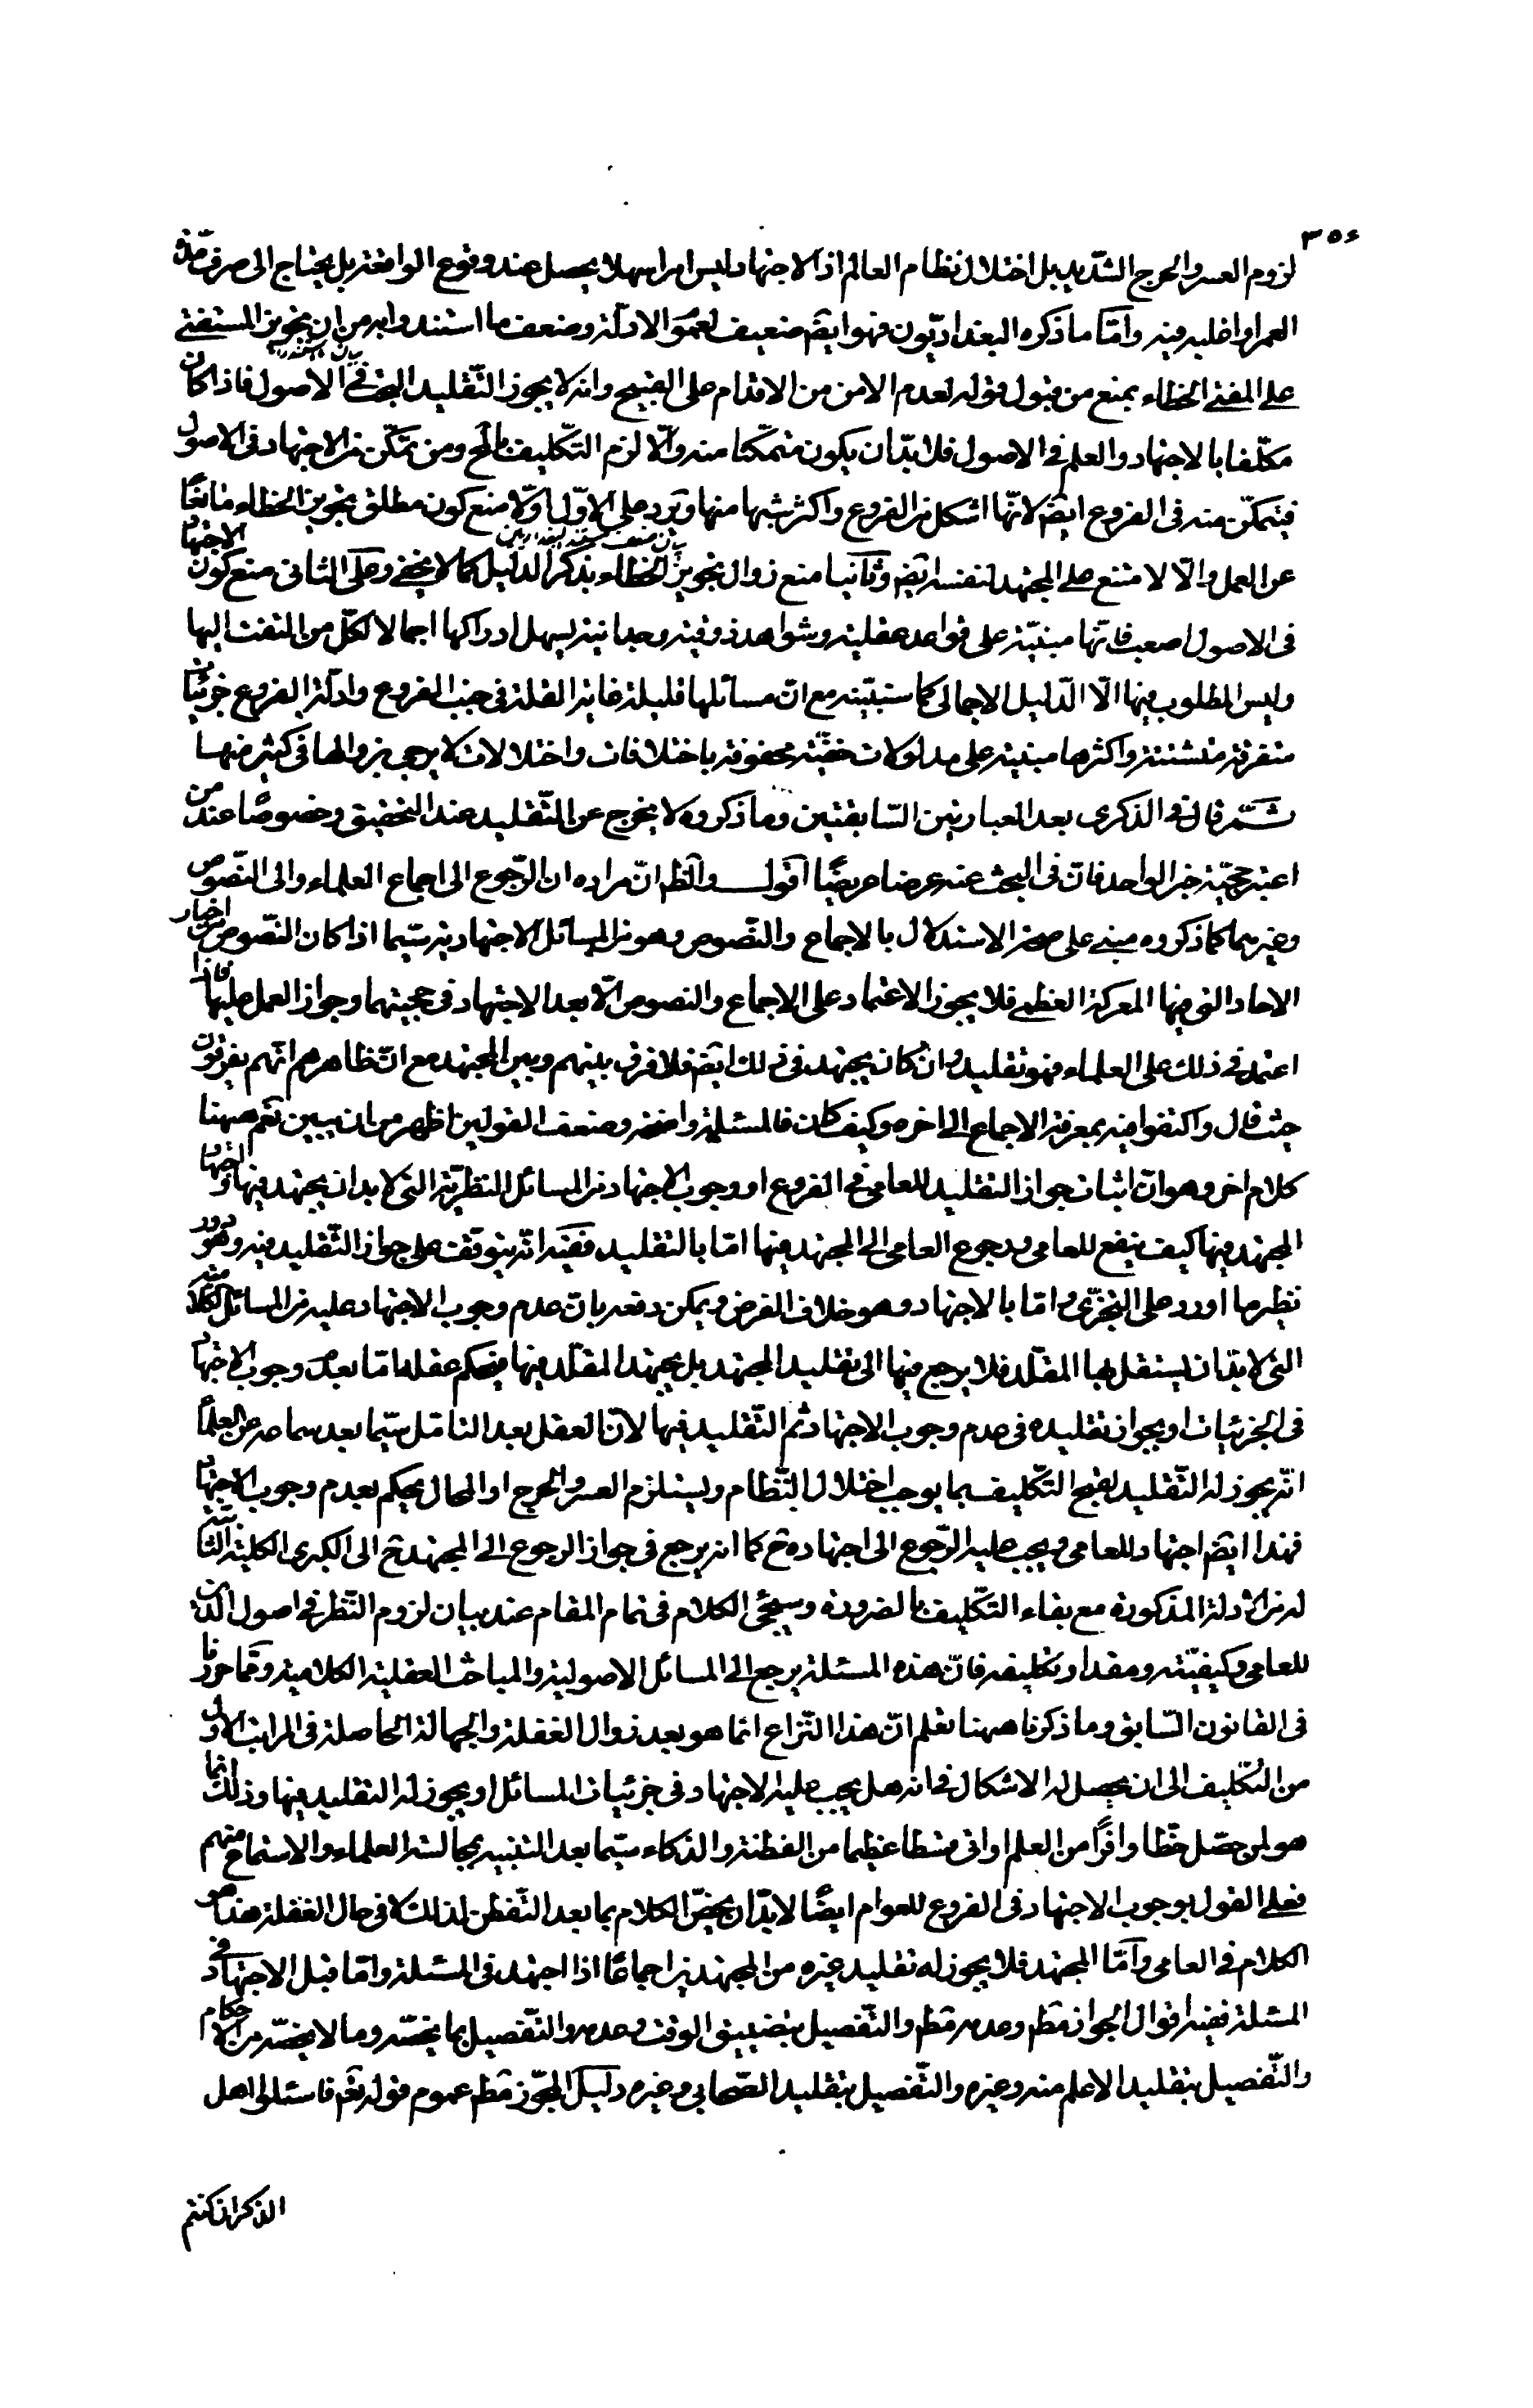 ٣٥٤
لزوم العسر والحرج الشّديد بل اختلال نظام العالم اذ الاجتهاد ليس امرا سهلا يحصل عند وقوع الواقعة بل يحتاج الى صرف مدّة
العمر او اغلبه فيه وامّا ما ذكره البغداديّون فهو ايضً ضعيف لعموَ الادلّة وضعف ما استندوا به من ان تجويز المستفتى
على المفتى الخطاء يمنع من قبول قوله لعدم الامن من الاقدام على القبيح وانه لا يجوز التّقليد ايضً فى الاصول فاذا كان
مكلّفا بالاجتهاد والعلم فى الاصول فلا بدّ ان يكون متمكّنا منه والّا لزم التكليف بالمح ومن تمكّن من الاجتهاد فى الاصول
فيتمكّن منه فى الفروع ايضً لانّها اشكل من الفروع واكثر شبها منها ويرد على الاوّل اوّلا منع كون مطلق تجويز الخطاء مانعًا
بيان ضعف مستند البغداديين
عن العمل والّا لامتنع على المجتهد لنفسه ايضً وثانيا منع زوال تجويز الخطاء بذكر الدليل كما لا يخفى وعلى الثانى منع كون الاجتهاد
فى الاصول اصعب فانّها مبنيّة على قواعد عقلية وشواهد ذوقية وجدانية يسهل ادراكها اجمالا لكلّ من التفت اليها
وليس المطلوب فيها الّا الدّليل الاجمالى كما سنبيّنه مع انّ مسائلها قليلة غاية القلة فى جنب الفروع وادلّة الفروع جزئيات
متفرقة متشتتة واكثرها مبنية على مدلولات خفيّة محفوفة باختلافات واختلالات لا يرجى زوالها فى كثير منها
ثمّ قال فى الذكرى بعد العبارتين السّابقتين وما ذكروه لا يخرج عن التّقليد عند التحقيق وخصوصًا عند من
اعتبر حجيّة خبر الواحد فانّ فى البحث عنه عرضا عريضًا اقول والظَ انّ مراده ان الرّجوع الى اجماع العلماء والى النّصوص
وغيرهما كما ذكروه مبنى على صحة الاستدلال بالاجماع والنّصوص وهو من المسائل الاجتهادية سيّما اذا كان النّصوص من اخبار
الاحاد التى فيها المعركة العظمى فلا يجوز الاعتماد على الاجماع والنصوص الّا بعد الاجتهاد فى حجيتهما وجواز العمل عليها فاذا
اعتمد فى ذلك على العلماء فهو تقليد وان كان يجتهد فى ذلك ايضً فلا فرق بينهم وبين المجتهد مع انّ ظاهرهم انّهم يفرقون
حيث قال واكتفوا فيه بمعرفة الاجماع الى اخره وكيف كان فالمسئلة واضحة وضعف القولين اظهر من ان يبيّن نعَم ههنا
كلام اخر وهو انّ اثبات جواز التقليد للعامى فى الفروع او وجوب الاجتهاد من المسائل النظريّة التى لا بد ان يجتهد فيها واجتهاد
المجتهد فيها كيف ينفع للعامى ورجوع العامى الى المجتهد فيها امّا بالتقليد ففيه انّه يتوقف على جواز التّقليد فيه وهو دور
نظير ما اورد على التجزّى وامّا بالاجتهاد وهو خلاف الفرض ويمكن دفعه بانّ عدم وجوب الاجتهاد عليه من المسائل الكلامية
التى لا بدّ ان يستقل بها المقلّد فلا يرجع فيها الى تقليد المجتهد بل يجتهد المقلّد فيها فيحكم عقله امّا بعدمَ وجوب الاجتهاد
فى الجزئيات او بجواز تقليده فى عدم وجوب الاجتهاد ثم التّقليد فيها لانّ العقل بعد التامّل سيّما بعد سماعه عن العلماء
انّه يجوز له التّقليد لقبح التّكليف بما يوجب اختلال النّظام ويستلزم العسر والحرج او المحال يحكم بعدم وجوب الاجتهاد
فهذا ايضً اجتهاد للعامى ويجب عليه الرّجوع الى اجتهاده حَ كما انه يرجع فى جواز الرجوع الى المجتهد حَ الى الكبرى الكلية الثّابتة
له من الادلة المذكورة مع بقاء التّكليف بالضرورة وسيجئ الكلام فى تمام المقام عند بيان لزوم النّظر فى اصول الدّين
للعامى وكيفيّته ومقدار تكليفه فانّ هذه المسئلة يرجع الى المسائل الاصولية والمباحث العقلية الكلامية وممّا حررنا
فى القانون السّابق وما ذكرنا ههنا تعلم انّ هذا النّزاع انّما هو بعد زوال الغفلة والجهالة الحاصلة فى المراتب الاول
من التّكليف الى ان يحصل له الاشكال فى انه هل يجب عليه الاجتهاد فى جزئيات المسائل او يجوز له التقليد فيها وذلك انّما
هو لمن حصّل حظّا وافرًا من العلم او اتى قسطا عظيما من الفطنة والذكاء سيّما بعد التنبيه بمجالسة العلماء والاستماع منهم
فعلى القول بوجوب الاجتهاد فى الفروع للعوام ايضًا لا بدّ ان يخصّ الكلام بما بعد التّفطن لذلك لا فى حال الغفلة هذا هو
الكلام فى العامى وامّا المجتهد فلا يجوز له تقليد غيره من المجتهدين اجماعًا اذا اجتهد فى المسئلة وامّا قبل الاجتهاد فى
المسئلة ففيه اقوال الجواز مطَم وعدمه مطَم والتّفصيل بتضييق الوقت وعدمه والتّفصيل بما يخصّه وما لا يخصّه من الاحكام
والتّفصيل بتقليد الاعلم منه وغيره والتّفصيل بتقليد الصّحابى وغيره دليل المجوّز مطَم عموم قوله تعَم فاسئلوا اهل
الذكر ان كنتم